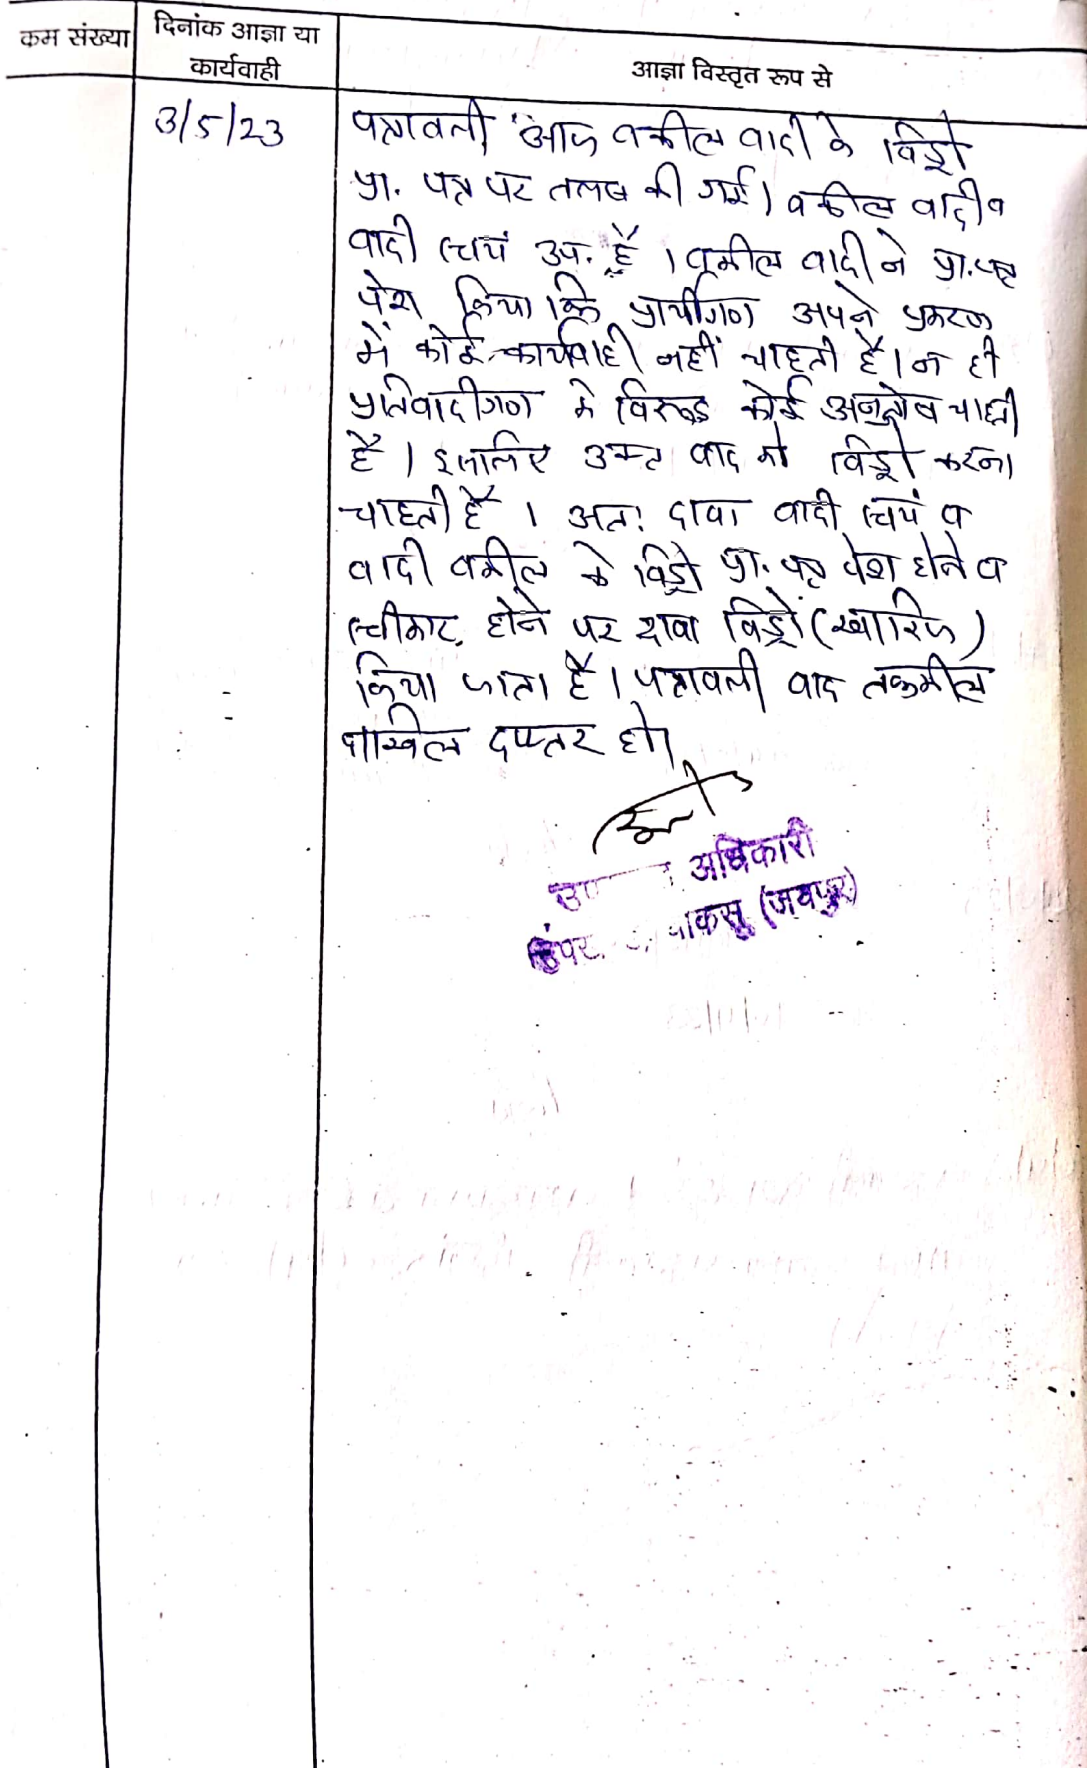 कम संख्या
दिनांक आज्ञा या
कार्यवाही
आज्ञा विस्तृत रूप से
3/5/23
पत्रावली आज वकील वादी के विड्रो
प्रा. पत्र पर तलब की गई। वकील वादी व
वादी स्वयं उप. है। वकील वादी ने प्रा. पत्र
पेश किया कि प्रार्थीगण अपने प्रकरण
में कोई कार्यवाही नहीं चाहती है। न ही
प्रतिवादीगण के विरूद्ध कोई अनुतोष चाहती
है। इसलिए उक्त वाद को विड्रो करना
चाहती है। अतः दावा वादी स्वयं व
वादी वकील के विड्रो प्रा. पत्र पेश होने व
स्वीकार होने पर दावा विड्रो (खारिज)
किया जाता है। पत्रावली बाद तकमील
दाखिल दफ्तर हो।
अधिकारी
चाकसू (जयपुर)